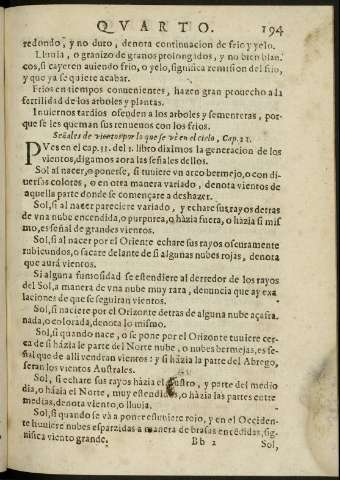 QVARTO. 194
redondo, y no duro, denota continuacion de frio y yelo.
Lluuia, o granizo de granos prolongados, y no bien blan-
cos, si cayeren auiendo frio, o yelo, significa remission del frio,
y que ya se quiere acabar.
Frios en tiempos conuenientes, hazen gran prouecho a la
fertilidad de los arboles y plantas.
Inuiernos tardios ofenden a los arboles y sementeras, por-
que se les queman sus renueuos con los frios.
Señales de vientos por lo que se vé en el cielo, Cap. 22.
PVes en el cap. 31. del 1. libro diximos la generacion de los
vientos, digamos aora las señales dellos.
Sol al nacer, o ponerse, si tuuiere vn arco bermejo, o con di-
uersos colores, o en otra manera variado, denota vientos de
aquella parte donde se començare a deshazer.
Sol, si al nacer pareciere variado, y echare sus rayos detras
de vna nube encendida, o purpurea, o házia fuera, o házia si mis-
mo, es señal de grandes vientos.
Sol, si al nacer por el Oriente echare sus rayos oscuramente
rubicundos, o sacare delante de si algunas nubes rojas, denota
que aurá vientos.
Si alguna fumosidad se estendiere al derredor de los rayos
del Sol, a manera de vna nube muy rara, denuncia que ay exa-
laciones de que se seguiran vientos.
Sol, si naciere por el Orizonte detras de alguna nube açafra-
nada, o colorada, denota lo mismo.
Sol, si quando nace, o se pone por el Orizonte tuuiere cer-
ca de si házia la parte del Norte nube, o nubes bermejas, es se-
ñal que de alli vendran vientos: y si házia la parte del Abrego,
seran los vientos Australes.
Sol, si echare sus rayos házia el Austro, y parte del medio
dia, o házia el Norte, muy estendidos, o házia las partes entre
medias, denota viento, o lluuia.
Sol, si quando se vá a poner estuuiere rojo, y en el Occiden-
te tuuiere nubes esparzidas a manera de brasas encédidas, sig-
nifica viento grande. Bb 2 Sol,